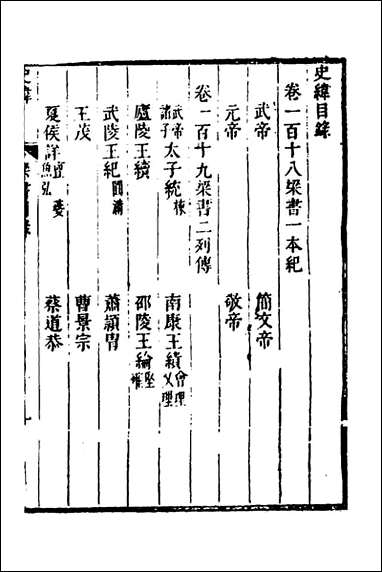 史緯目錄
卷一百十八梁書一本紀
武帝 簡文帝
元帝 敬帝
卷一百十九梁書二列傳
武帝諸子太子統棟 南康王績會理乂理
廬陵王續 邵陵王綸堅確
武陵王紀圓滿 蕭穎胄
王茂 曹景宗
夏侯詳亶夔魚弘 蔡道恭
史緯 梁書目錄